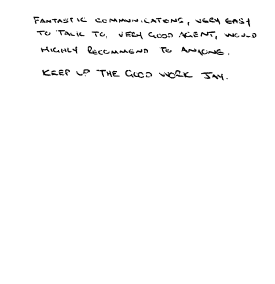 FANTASTIC COMMUNICATIONS, VERY EASY
TO TALK TO, VERY GOOD AGENT, WOULD
HIGHLY RECOMMEND TO ANYONE.
KEEP UP THE GOOD WORK JAY.